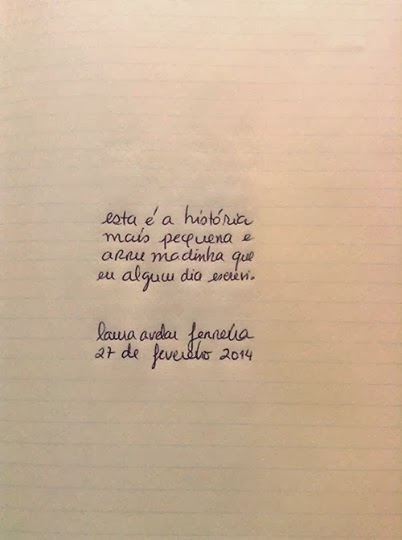 esta é a história
mais pequena e
arrumadinha que
eu algum dia escrevi.
laura avelar ferreira
27 de fevereiro 2014